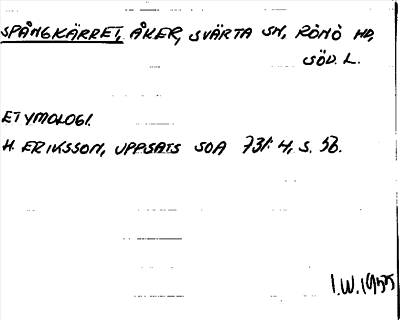 SPÅNGKÄRRET, ÅKER, SVÄRTA SN, RÖNÖ HD,
SÖD. L.
ETYMOLOGI.
H. ERIKSSON, UPPSATS SOA 731:4, S. 56.
I.W. 1955